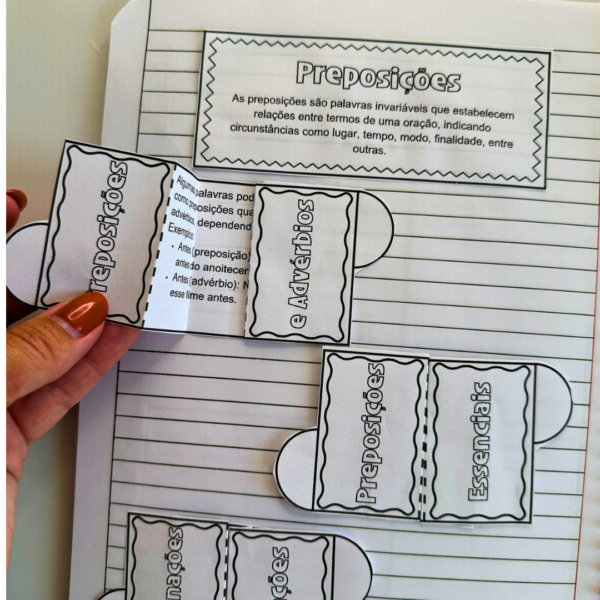 Preposições
As preposições são palavras invariáveis que estabelecem
relações entre termos de uma oração, indicando
circunstâncias como lugar, tempo, modo, finalidade, entre
outras.
reposições
Algumas palavras pod
como preposições qua
advérbios, dependend
Exemplos
• Antes (preposição)
antes do anoitecer
• Antes (advérbio): N
esse filme antes.
e Advérbios
Preposições
Essenciais
mações
ções